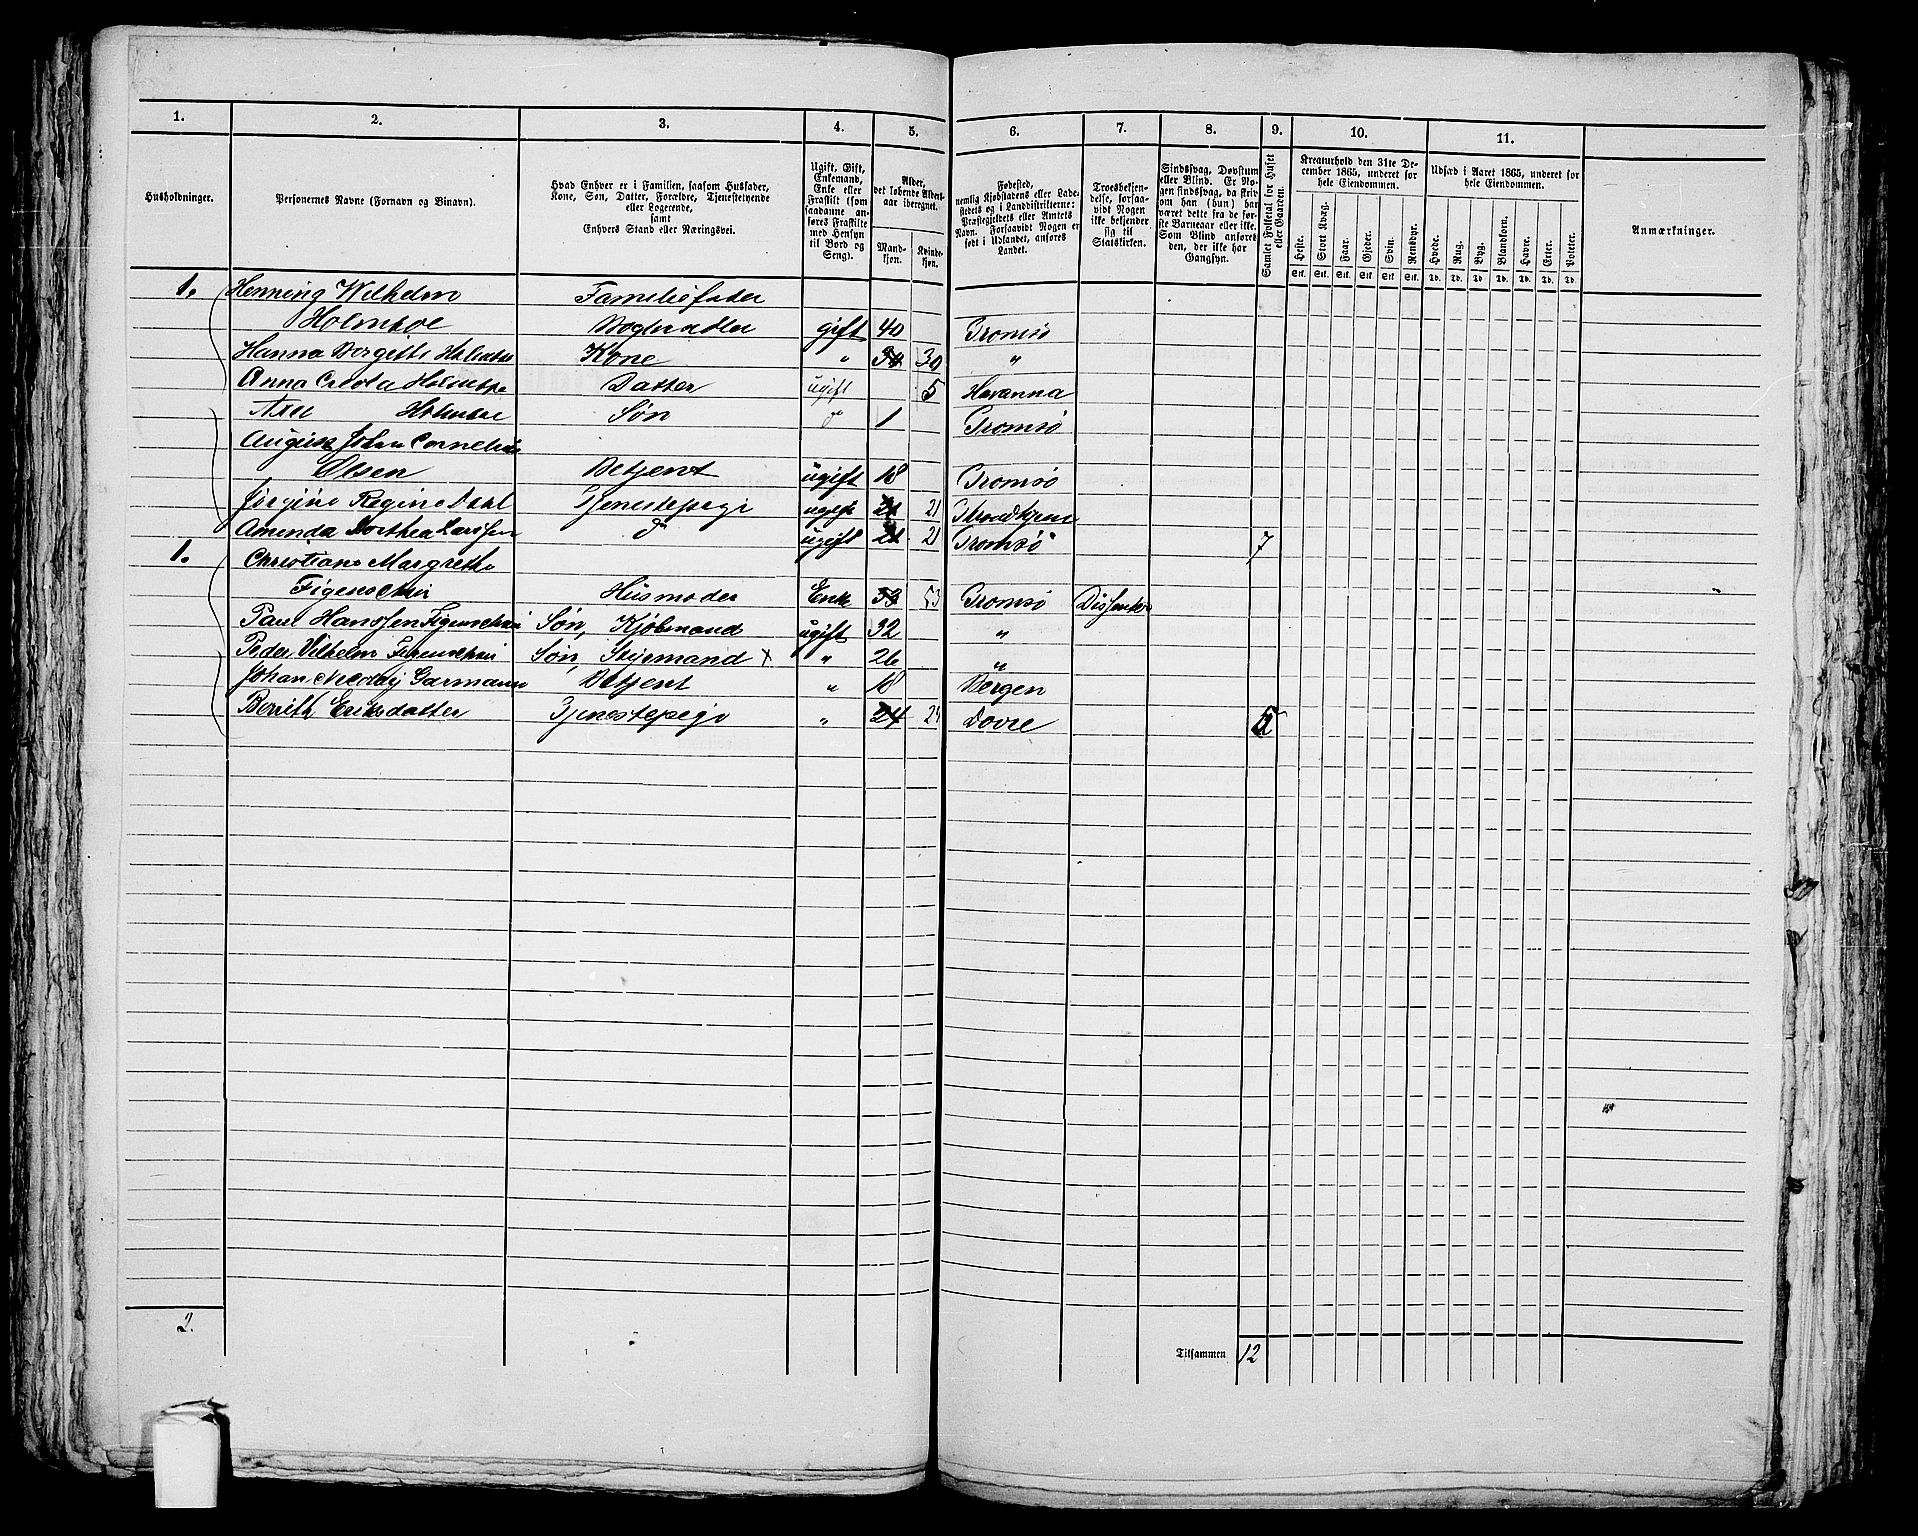 1. 2. 3. 4. 5. 6. 7. 8. 9. 10. 11.
Husholdninger.
Personernes Navne (Fornavn og Binavn).
Hvad Enhver er i Familien, saasom Husfader,
Kone, Søn, Datter, Forældre, Tjenestetyende
eller Logerende,
samt
Enhvers Stand eller Næringsvei.
Ugift, Gift,
Enkemand,
Enke eller
Fraskilt (som
saadanne an-
føres Fraskilte
med Hensyn
til Bord og
Seng).
Alder,
det løbende Alders-
aar iberegnet.
Mand-
kjøn.
Kvinde-
kjøn.
Fødested,
nemlig Kjøbstadens eller Lade-
stedets og i Landdistrikterne:
Præstegjeldets eller Amtets
Navn. Forsaavidt Nogen er
født i Udlandet, anføres
Landet.
Troesbekjen-
delse, forsaa-
vidt Nogen
ikke bekjender
sig til
Statskirken.
Sindssvag, Døvstum
eller Blind. Er No-
gen sindssvag, da skriv
om han (hun) har
været dette fra de før-
ste Barneaar eller ikke.
Som Blind anføres
den, der ikke har
Gangsyn.
Samlet Folketal for Huset
eller Gaarden.
Kreaturhold den 31te De-
cember 1865, underet for
hele Eiendommen.
Heste. Stort Kvæg. Faar. Gjeder. Svin. Rensdyr.
Stk. Stk. Stk. Stk. Stk. Stk.
Udsæd i Aaret 1865, underet for
hele Eiendommen.
Hvede. Rug. Byg. Blandkorn. Havre. Erter. Poteter.
Td. Td. Td. Td. Td. Td. Td.
Anmærkninger.
1. Henning Wilhelm Familiefader
Holmboe Boghandler gift 40 Tromsø
Hanna Bergitte Holmboe Kone " 30 30 "
Anna Holmboe Datter ugift 5 Havanna
Axel Holmboe Søn d 1 Tromsø
August Johan Cornelius
Olsen Betjent ugift 18 Tromsø
Jørgine Regine Dahl Tjenestepige ugift 21 21 Throndhjem
Amenda Dorthea Larssen do ugift 21 21 Tromsø 7
1. Christiane Margrethe
Figenschou Husmoder Enke 53 53 Tromsø Dissenter
Paul Hanssen Figenschou Søn, Kjøbmand ugift 32 "
Peder Vilhelm Figenschou Søn, Styrmand x " 26 "
Johan Nicolaj Garmann Betjent " 18 Bergen
Berrith Eriksdatter Tjenestepige " 24 24 Dovre 5
2.
Tilsammen 12